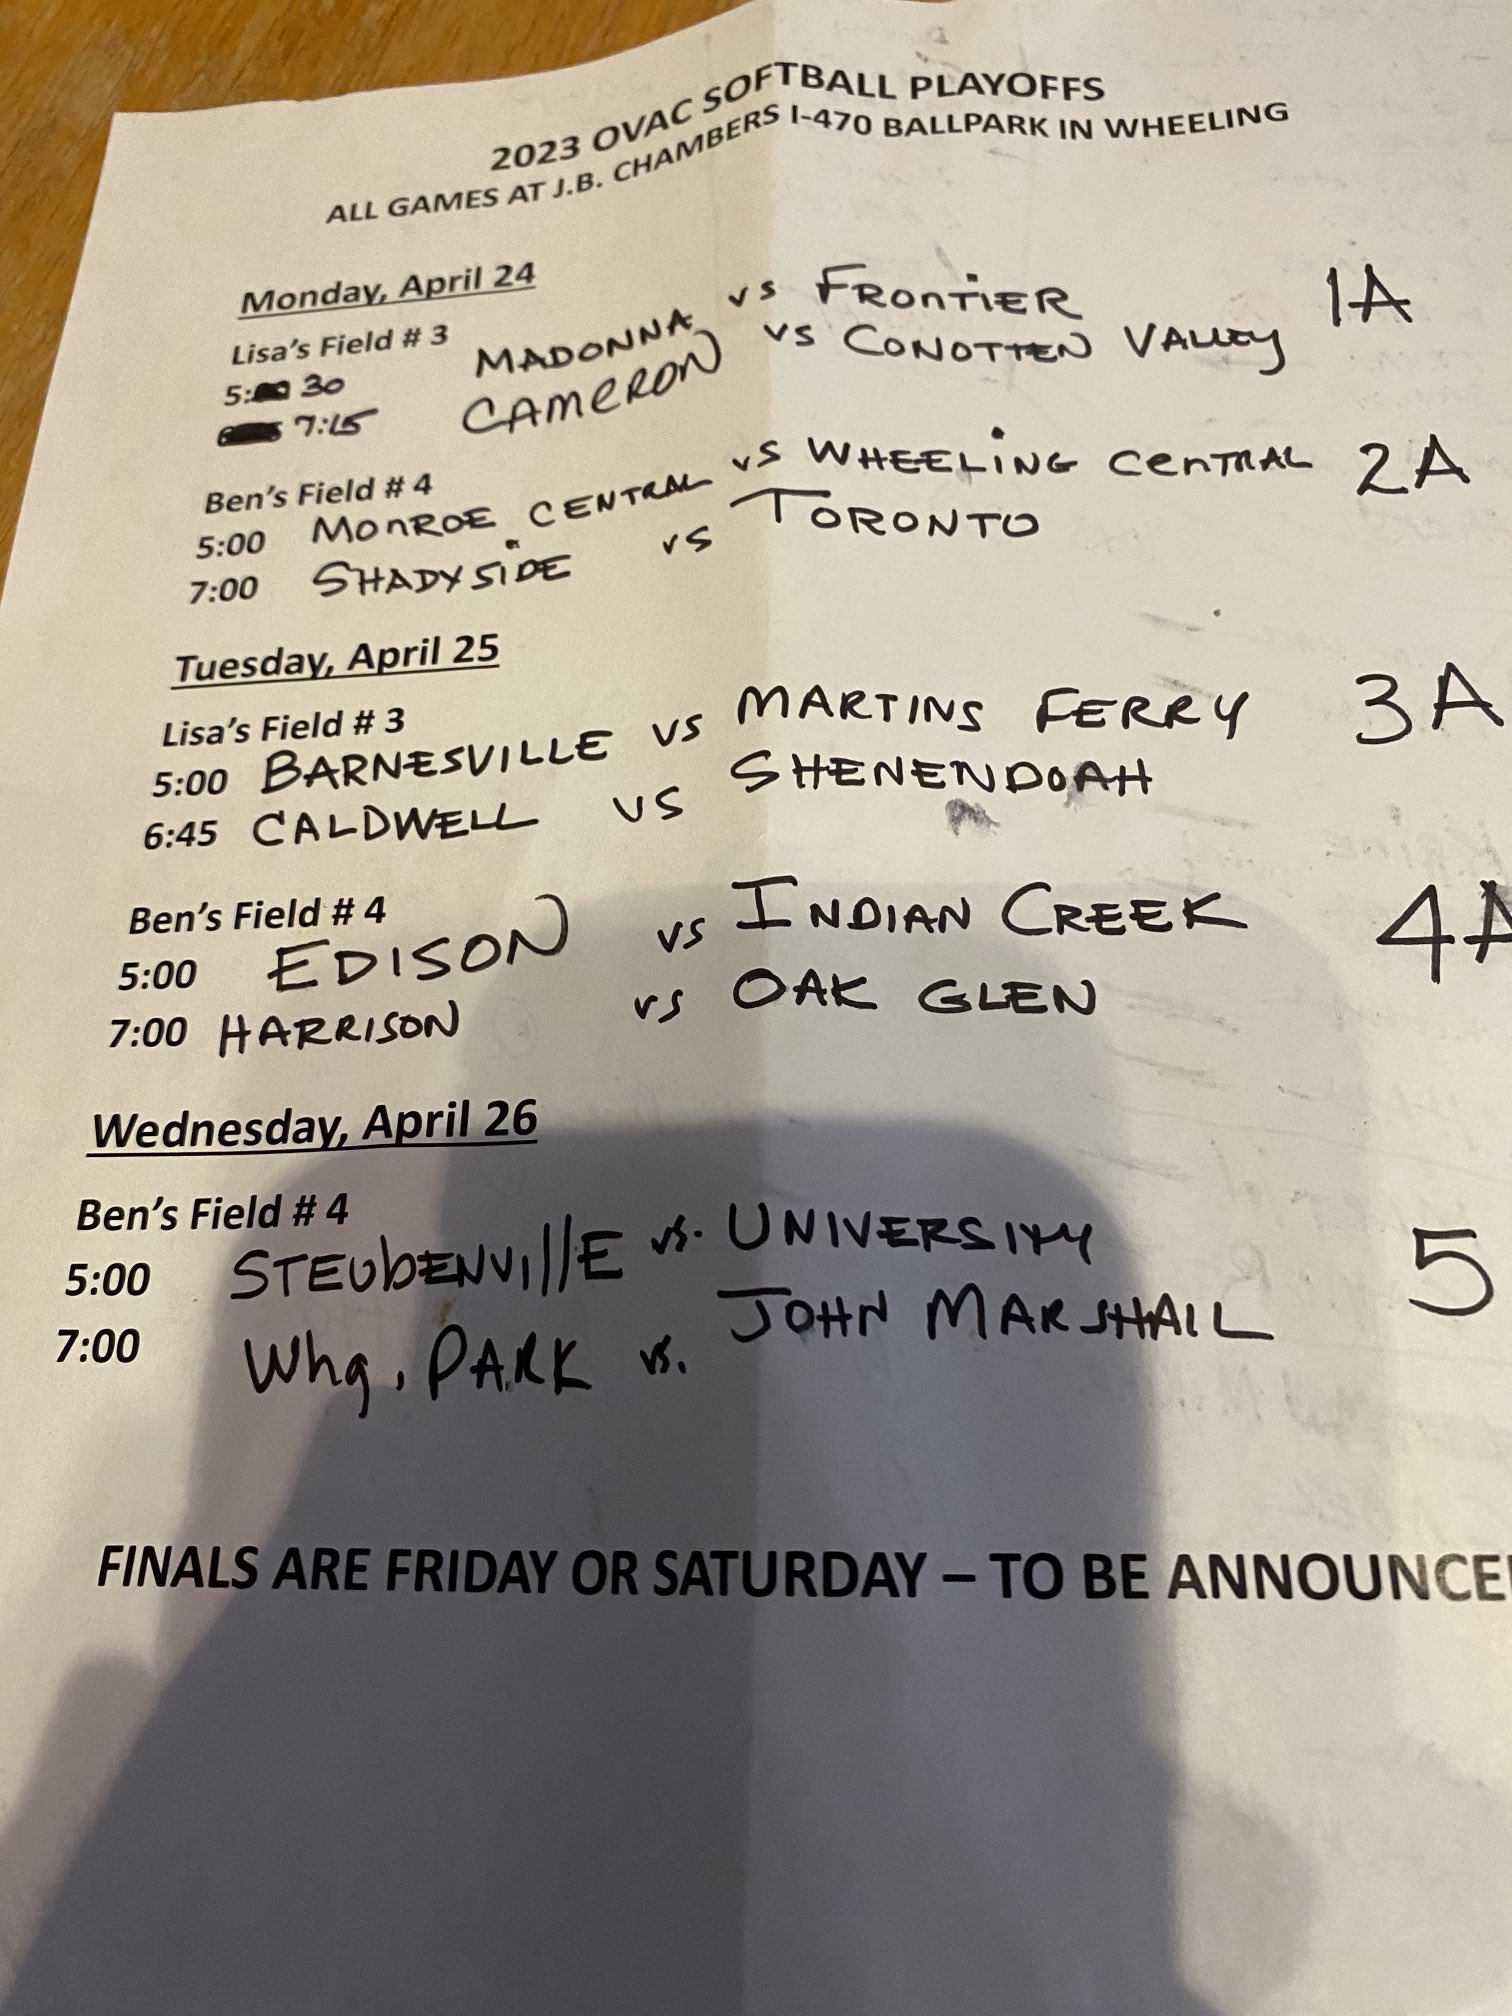 2023 OVAC SOFTBALL PLAYOFFS
ALL GAMES AT J.B. CHAMBERS I-470 BALLPARK IN WHEELING
Monday, April 24
Lisa's Field # 3
5:30 MADONNA vs FRONTIER 1A
7:15 CAMERON vs CONOTTEN VALLEY
Ben's Field # 4
5:00 MONROE CENTRAL vs WHEELING CENTRAL 2A
7:00 SHADYSIDE vs TORONTO
Tuesday, April 25
Lisa's Field # 3
5:00 BARNESVILLE vs MARTINS FERRY 3A
6:45 CALDWELL vs SHENENDOAH
Ben's Field # 4
5:00 EDISON vs INDIAN CREEK 4A
7:00 HARRISON vs OAK GLEN
Wednesday, April 26
Ben's Field # 4
5:00 STEUbENVIllE vs. UNIVERSITY 5
7:00 Whg, PARK vs. JOHN MARSHALL
FINALS ARE FRIDAY OR SATURDAY – TO BE ANNOUNCE